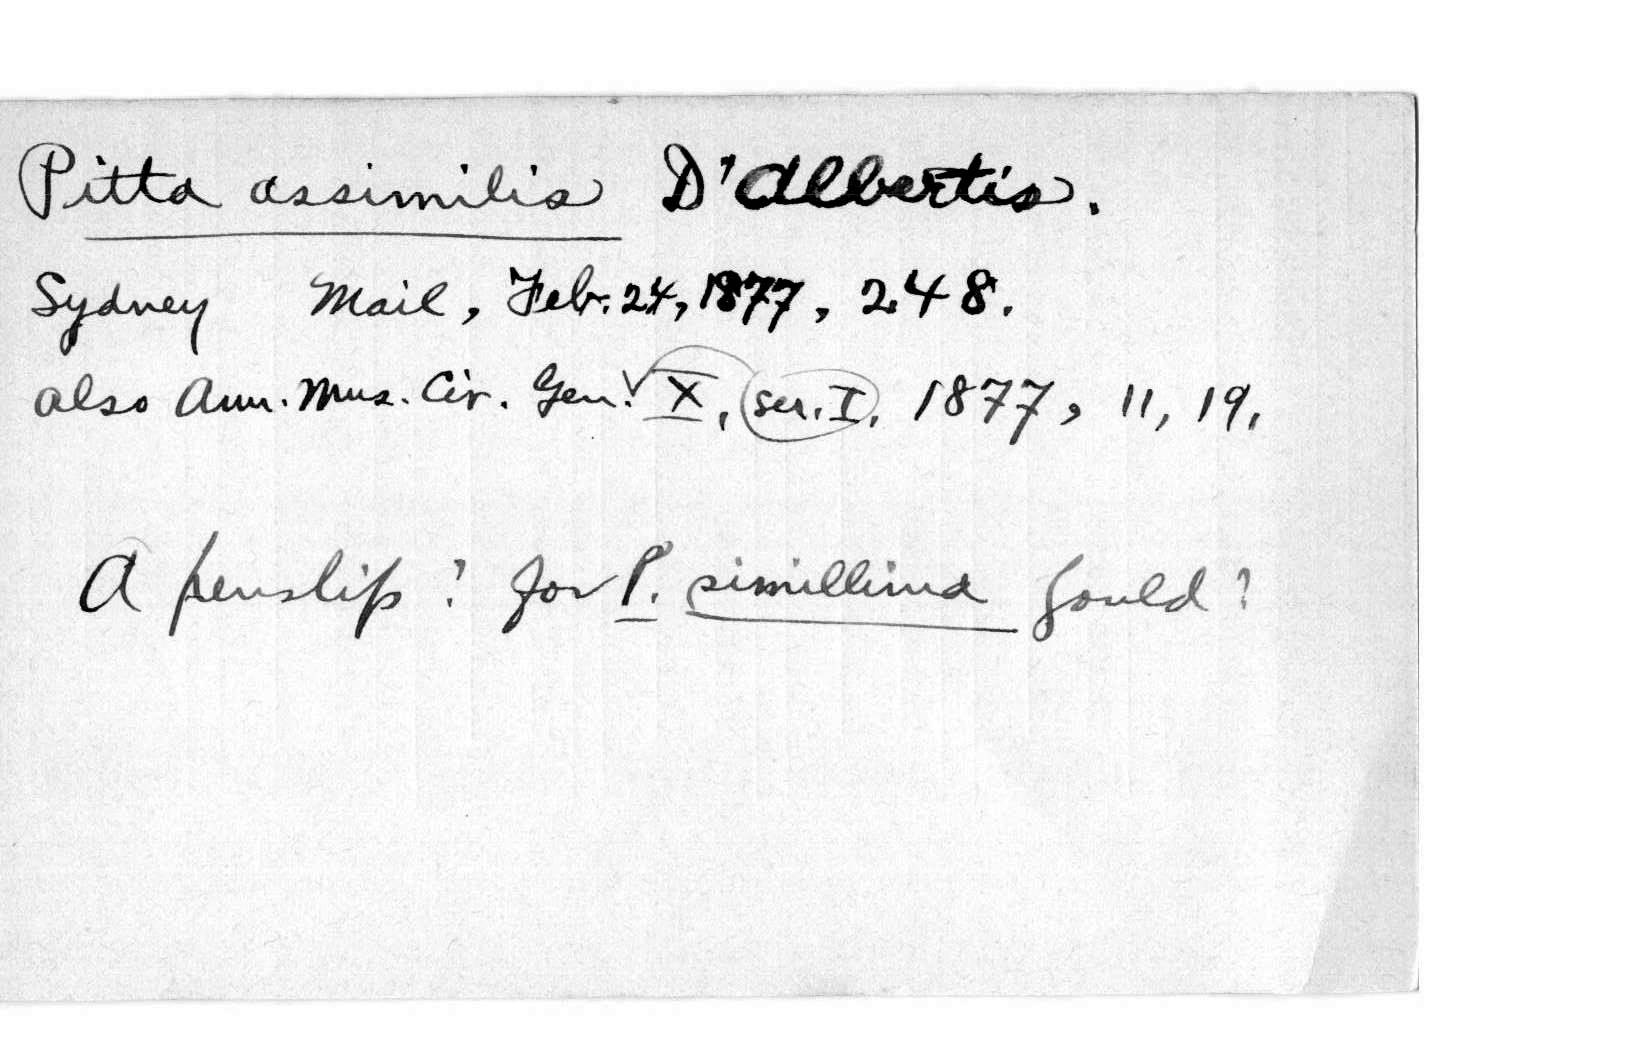 Pitta assimilis D'Albertis.
Sydney Mail, Feb. 24, 1877, 248.
also Ann. Mus. Civ. Gen. X, ser. I, 1877, 11, 19,
A penslip? for P. simillima Gould?